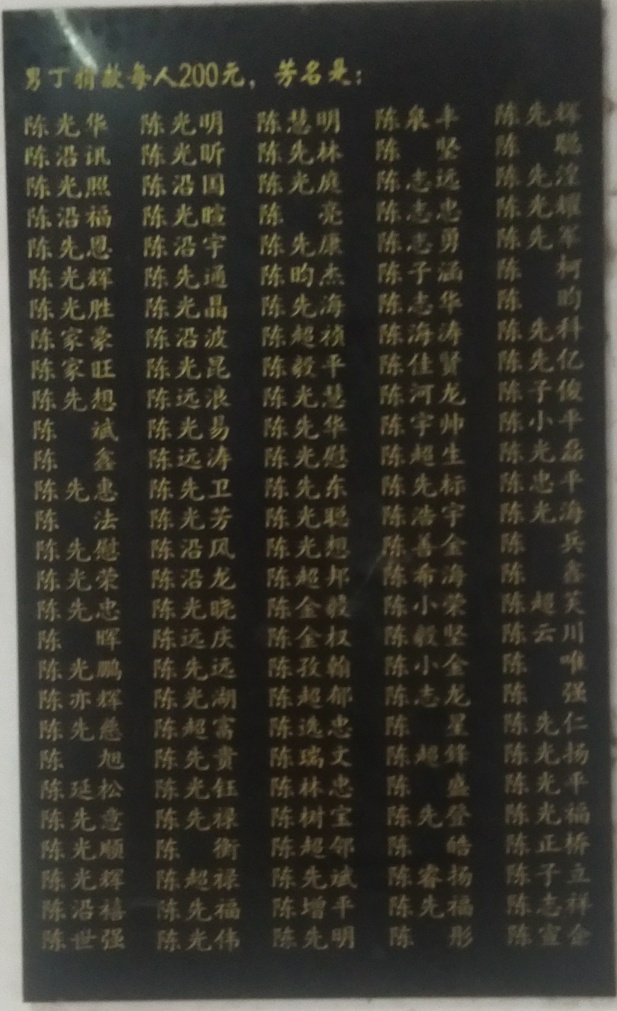 男丁捐款每人200元，芳名是：
陈光华 陈光明 陈慧明 陈泉丰 陈先辉
陈沿讯 陈光昕 陈先林 陈坚 陈聪
陈光照 陈沿国 陈光庭 陈志远 陈先湟
陈沿福 陈光暄 陈亮 陈志忠 陈光耀
陈先恩 陈沿宇 陈先康 陈志勇 陈先军
陈光辉 陈先通 陈昀杰 陈子涵 陈柯
陈光胜 陈光晶 陈先海 陈志华 陈昀
陈家豪 陈沿波 陈超祯 陈海涛 陈先科
陈家旺 陈光昆 陈毅平 陈佳贤 陈先亿
陈先想 陈远浪 陈光慧 陈河龙 陈子俊
陈斌 陈光易 陈先华 陈宇帅 陈小平
陈鑫 陈远涛 陈光慰 陈超生 陈光磊
陈先惠 陈先卫 陈先东 陈先标 陈忠平
陈法 陈光芳 陈光聪 陈浩宇 陈光海
陈先慰 陈沿风 陈光想 陈善金 陈兵
陈光荣 陈沿龙 陈超邦 陈希海 陈鑫
陈先忠 陈光晓 陈金毅 陈小荣 陈超芙
陈晖 陈远庆 陈金权 陈毅坚 陈云川
陈光鹏 陈先远 陈孜翰 陈小金 陈唯
陈亦辉 陈光湖 陈超郁 陈志龙 陈强
陈先慈 陈超富 陈逸忠 陈星 陈先仁
陈旭 陈先贵 陈瑞文 陈超锋 陈光扬
陈延松 陈光钰 陈林忠 陈盛 陈光平
陈先意 陈先禄 陈树宝 陈先登 陈光福
陈光顺 陈衡 陈超邻 陈皓 陈正桥
陈光辉 陈超禄 陈先斌 陈睿扬 陈子立
陈沿禧 陈先福 陈增平 陈先福 陈志祥
陈世强 陈光伟 陈先明 陈彤 陈宣企